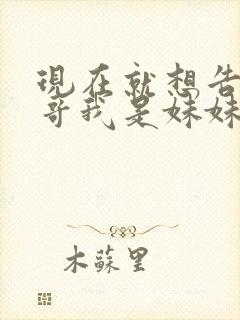 現在就想告
哥我是妹妹
木蘇里